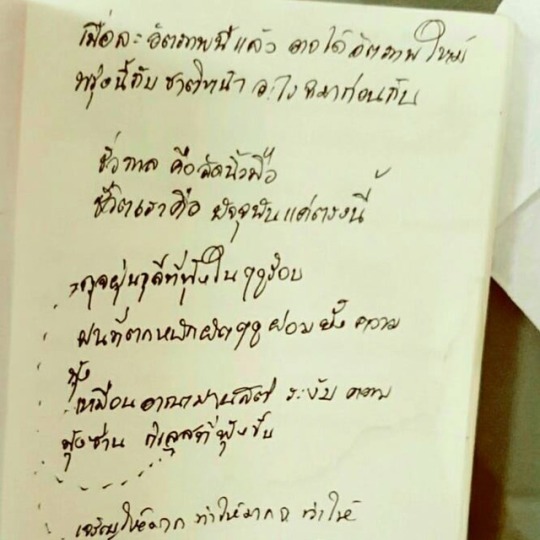 เมื่อละอัตภาพนี้แล้ว อาจได้อัตภาพใหม่
พรุ่งนี้กับชาติหน้า อะไรจะมาก่อนกัน
ชั่วกาล คือลัดนิ้วมือ
ชีวิตเราคือ ปัจจุบันแค่ตรงนี้
ดุจฝุ่นธุลีที่ฟุ้งในฤดูร้อน
ฝนที่ตกหนักผิดฤดูย่อมยัง ความ
ฟุ้ง
เหมือนอาณาปานสติ ระงับ ความ
ฟุ้งซ่าน กิเลสที่ฟุ้งขึ้น
เจริญให้มาก ทำให้มาก ๆ ทำให้